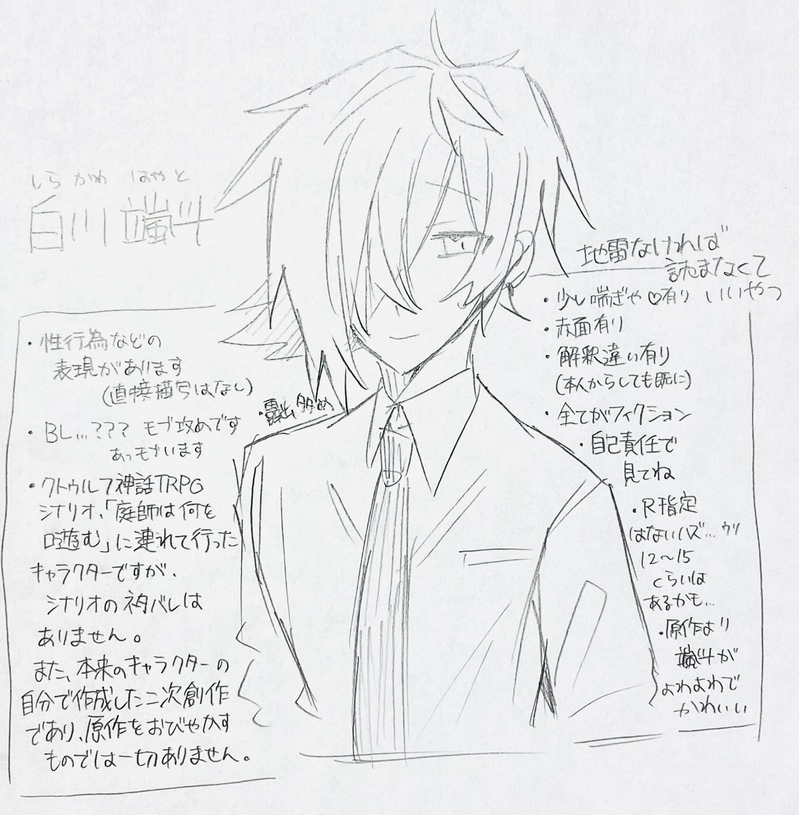 しらかわ はやと
白川 颯斗
・性行為などの
表現があります
(直接描写はなし)
・BL...??? モブ攻めです
あっモブいます
・クトゥルフ神話TRPG
シナリオ、「庭師は何を
口遊む」に連れて行った
キャラクターですが、
シナリオのネタバレは
ありません。
また、本来のキャラクターの
自分で作成した二次創作
であり、原作をおびやかす
ものでは一切ありません。
・露出多め
地雷なければ
読まなくて
いいやつ
・少し喘ぎや♡有り
・赤面有り
・解釈違い有り
(本人からしても既に)
・全てがフィクション
・自己責任で
見てね
・R指定
はないハズ...
12〜15
くらいは
あるかも...
・原作より
颯斗が
よわよわで
かわいい